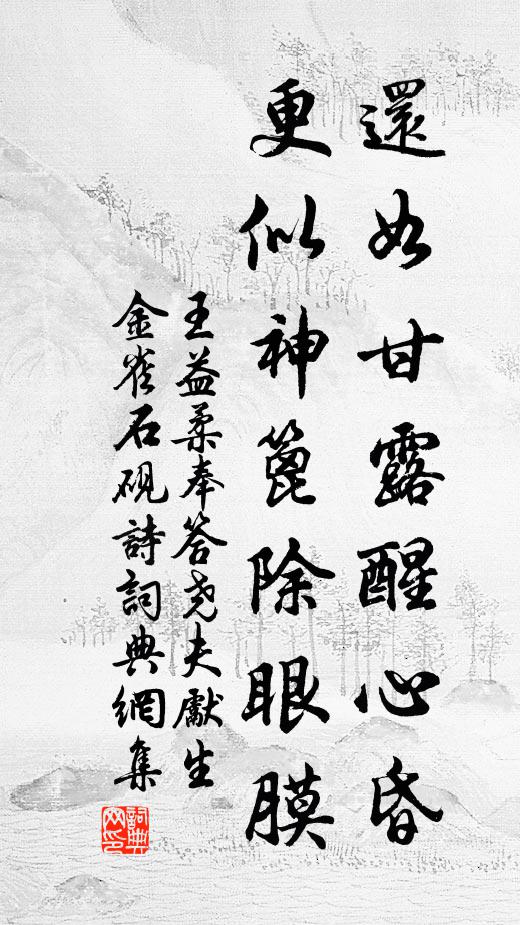 還如甘露醒心昏
更似神篦除眼膜
王益柔奉答尧夫獻生
金雀石硯詩詞典網集
詞典网印